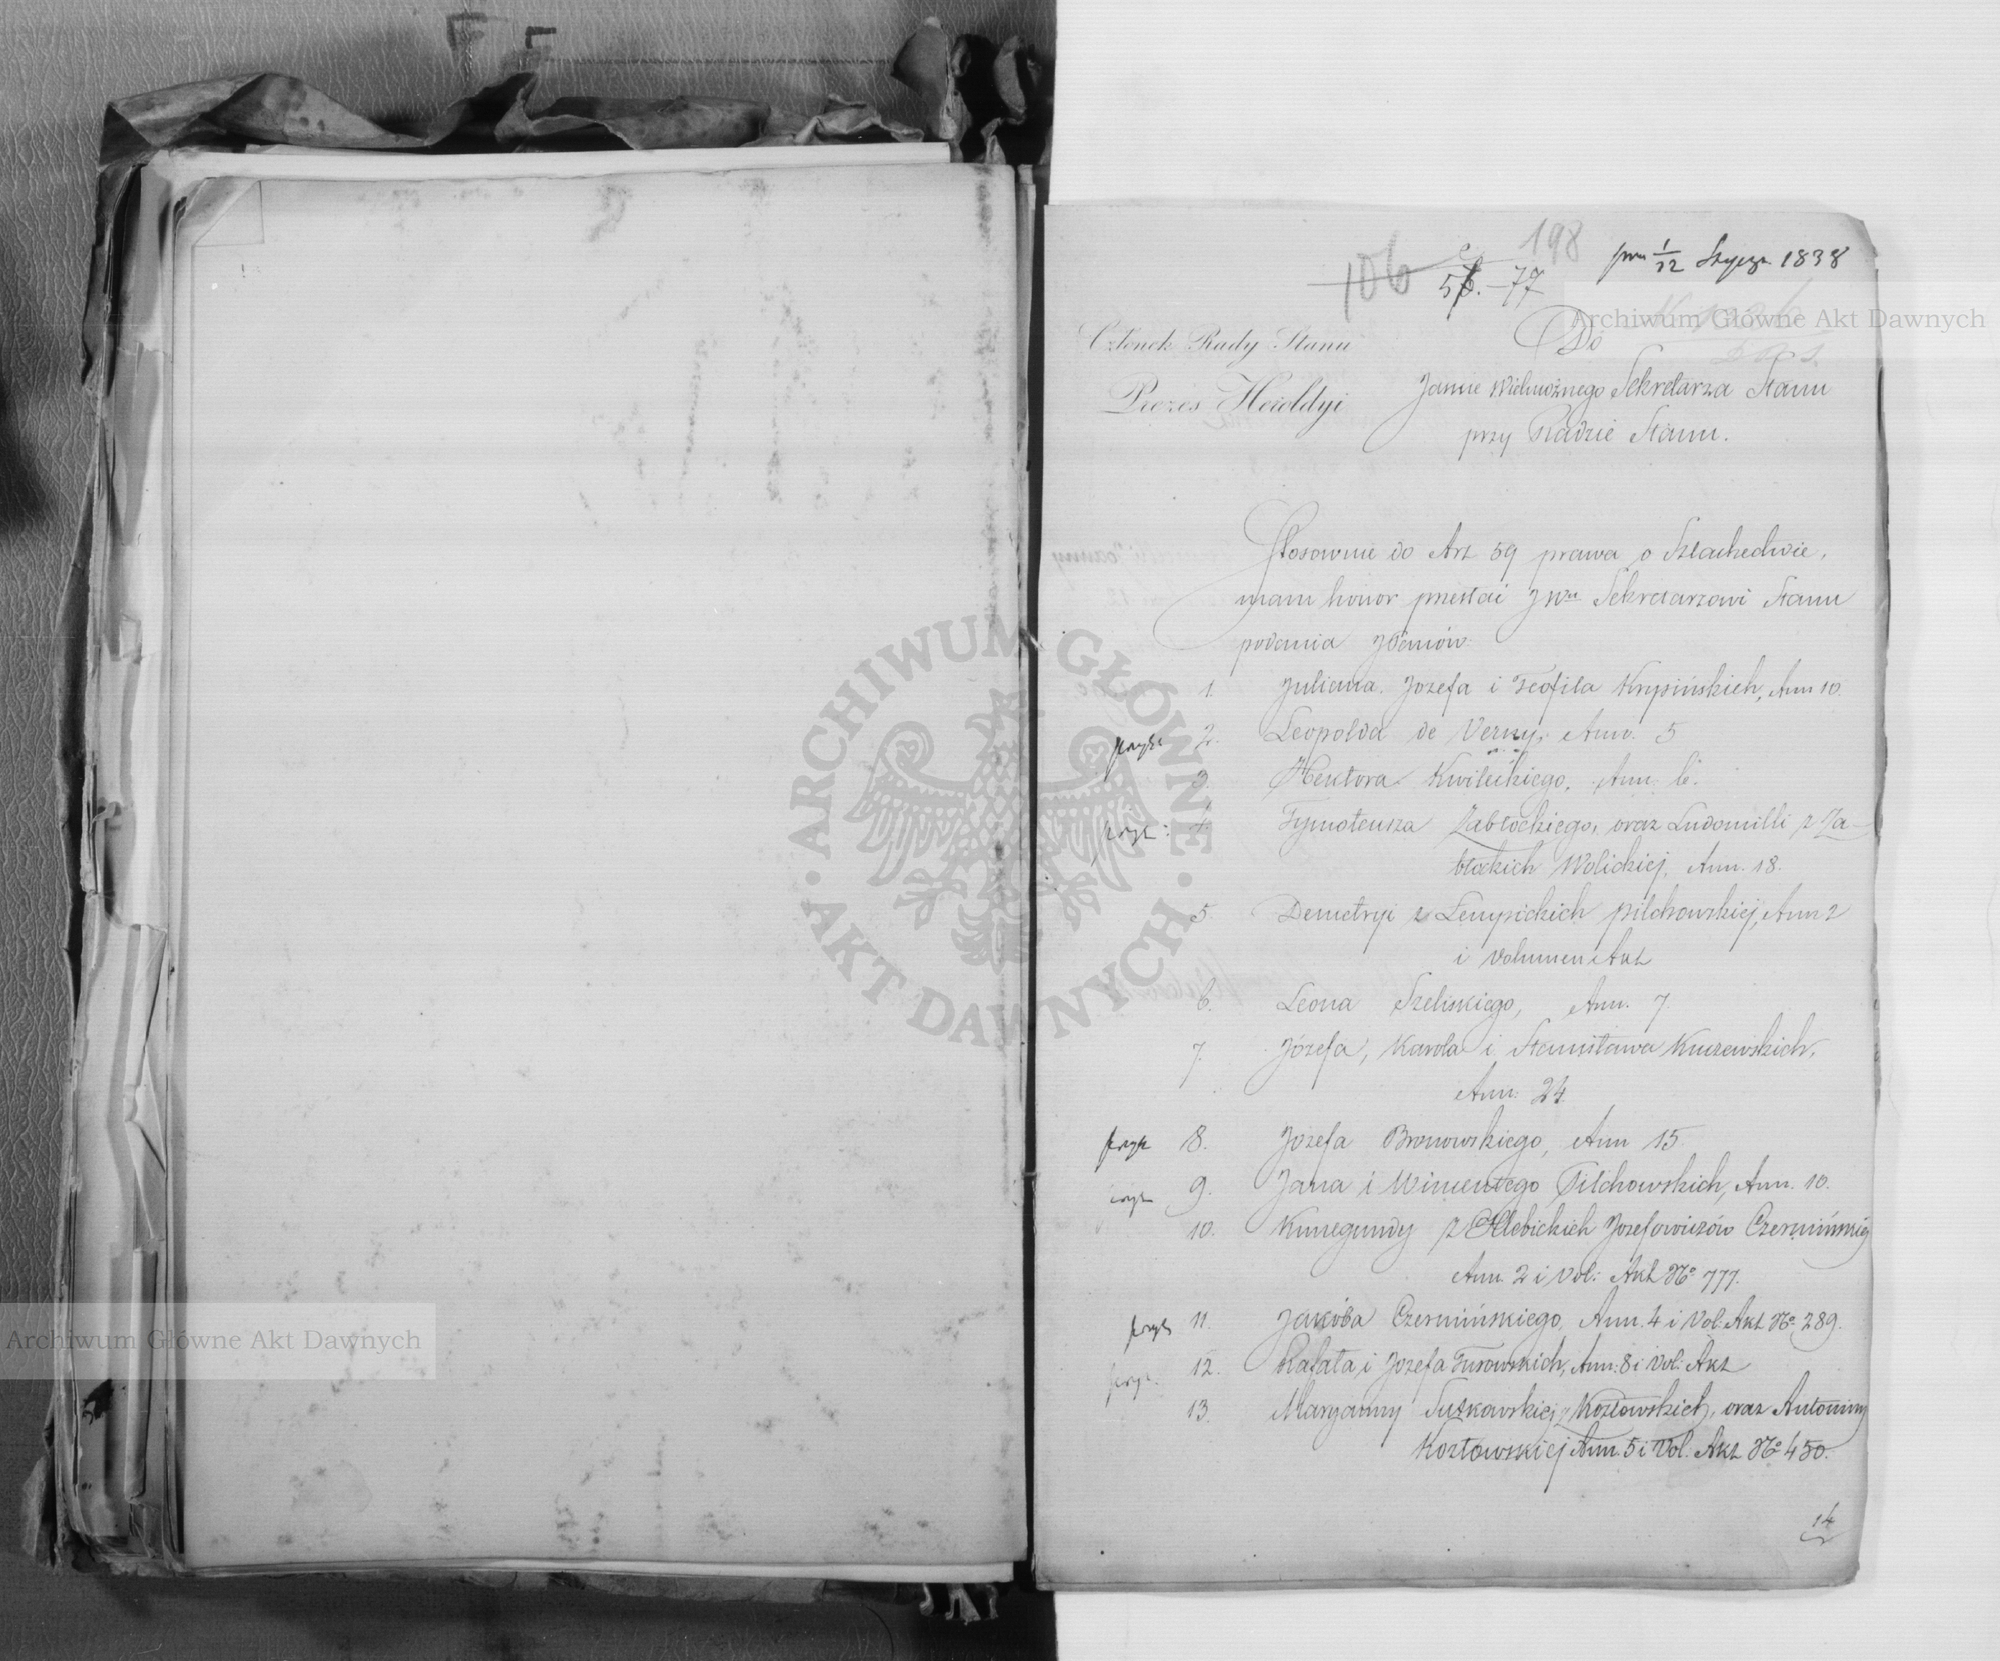 198
106
56. - 77
1/12 Stycz. 1838
Członek Rady Stanu
Prezes Heroldyi
Do
Jaśnie Wielmożnego Sekretarza Stanu
przy Radzie Stanu.
Stosownie do Art 59 prawa o Szlachectwie,
mam honor przesłać JWu Sekretarzowi Stanu
podania JPanów
1. Juliana. Józefa i Teofila Krysińskich, Ann 10.
2. Leopolda de Verny, Ann. 5
3. Hektora Kwileckiego, Ann. 6.
4. Tymoteusza Zabłockiego, oraz Ludomilli z Za-
błockich Wolickiej, Ann. 18.
5. Demetryi z Lempickich Pilchowskiej, Ann 2
i Volumen Akt
6. Leona Szeliskiego, Ann. 7.
7. Józefa, Karola i Stanisława Kuczewskich,
Ann: 24.
8. Józefa Bronowskiego, Ann 15
9. Jana i Wincentego Pilchowskich, Ann. 10.
10. Kunegundy z Chlebickich Józefowiczów Czermińskiej
Ann. 2 i Vol: Akt No 777.
11. Jakóba Czermińskiego, Ann. 4 i Vol: Akt No 289.
12. Rafała i Józefa Turowskich, Ann: 8 i Vol: Akt
13. Maryanny Suskowskiej z Kozłowskich, oraz Antoniny
Kozłowskiej Ann. 5 i Vol. Akt No 450.
14
Archiwum Główne Akt Dawnych
ARCHIWUM GŁÓWNE · AKT DAWNYCH ·
Archiwum Główne Akt Dawnych